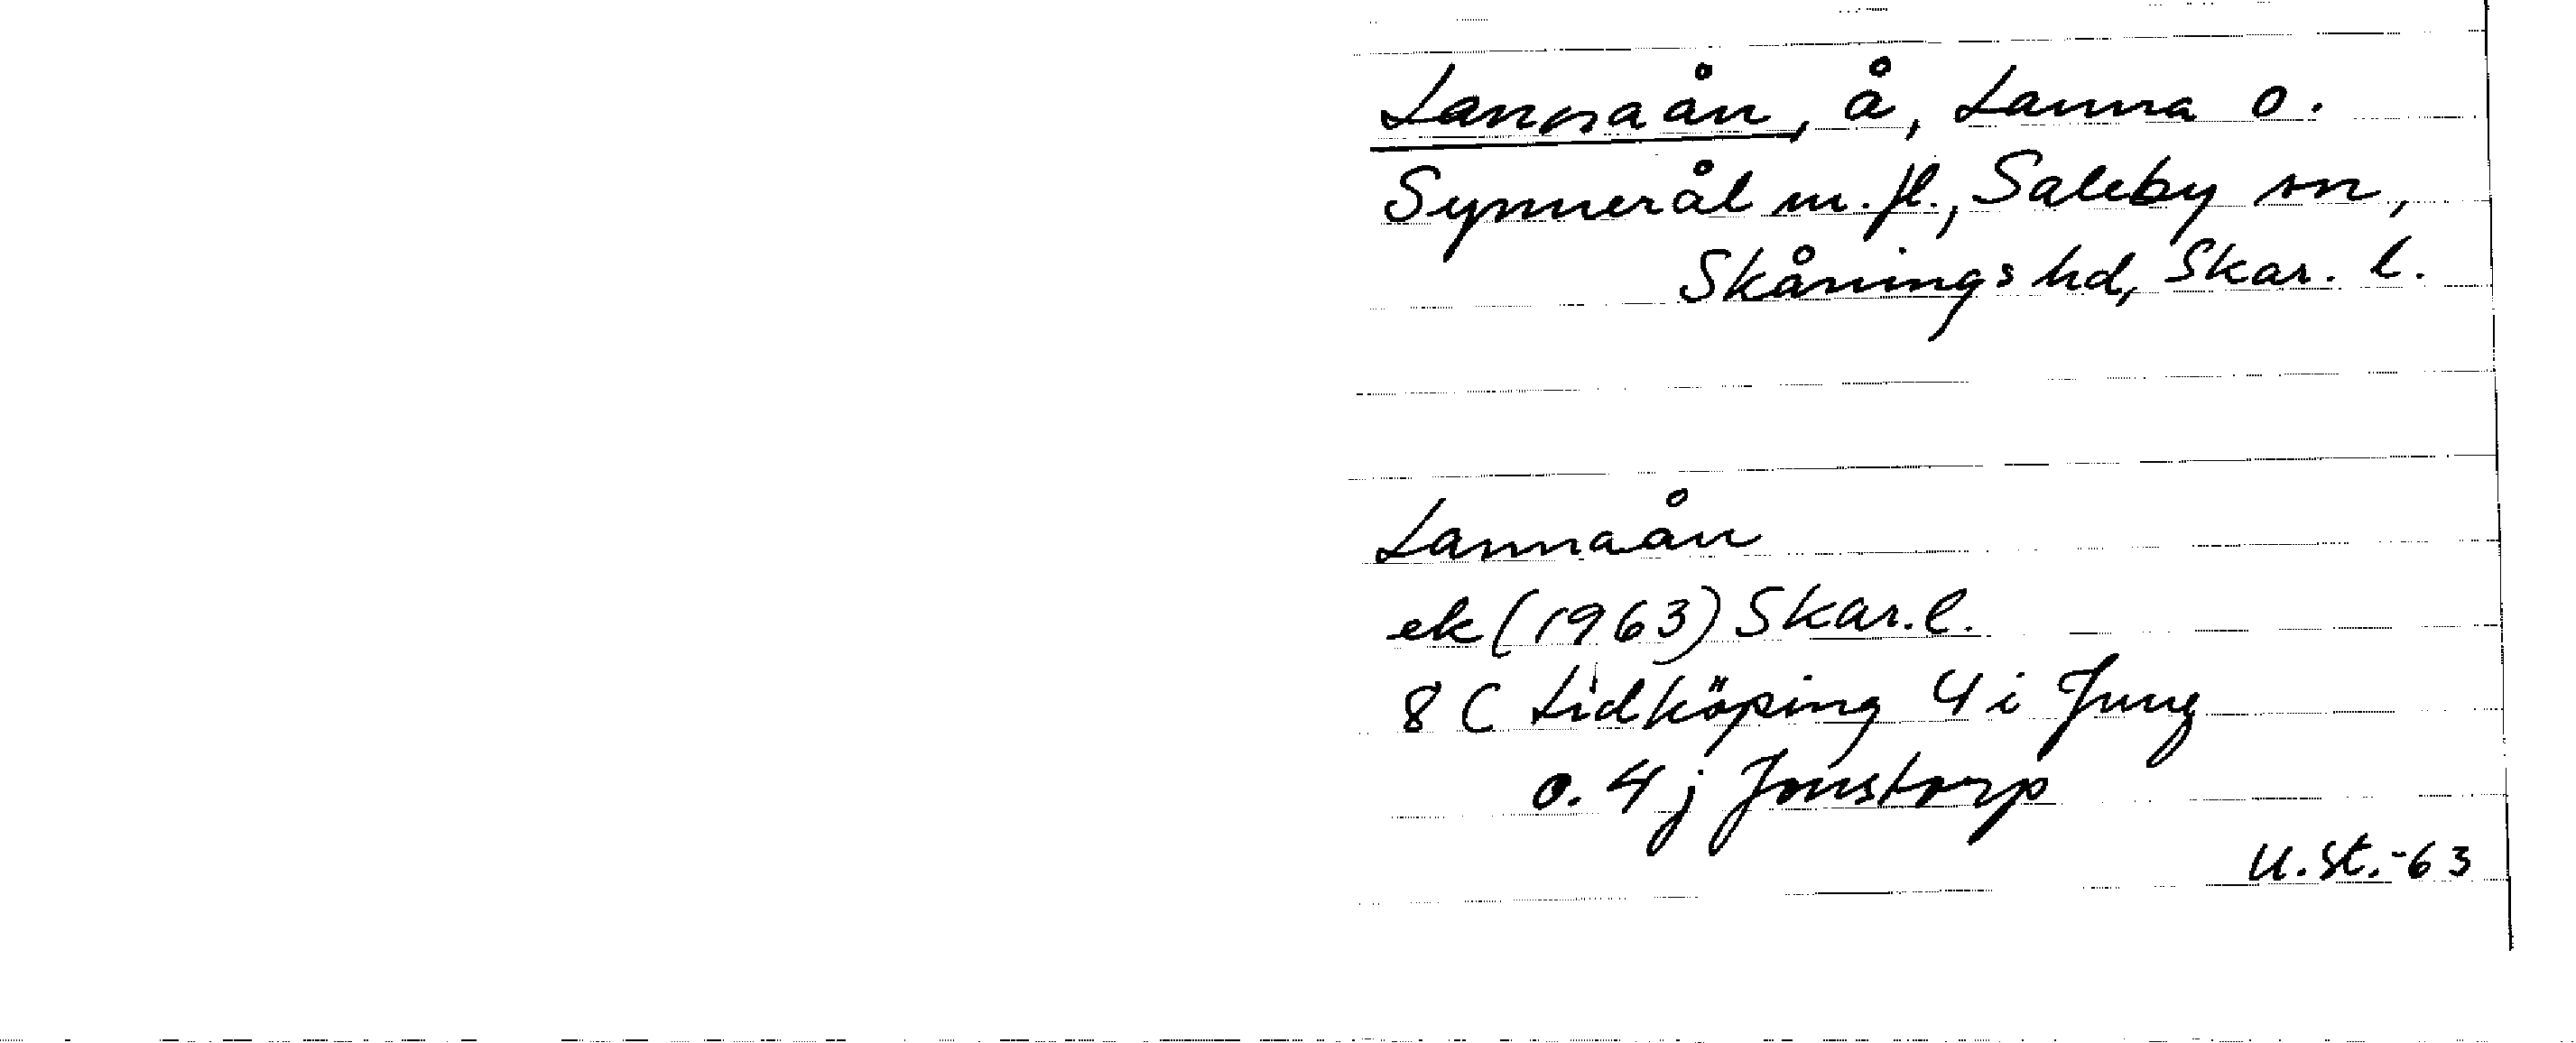 Lannaån, å, Lanna o.
Synnerål m.fl., Saleby sn,
Skånings hd, Skar. l.
Lannaån
ek (1963) Skar.l.
8 C Lidköping 4 i Jung
o. 4 j Jonstorp
U.St.-63